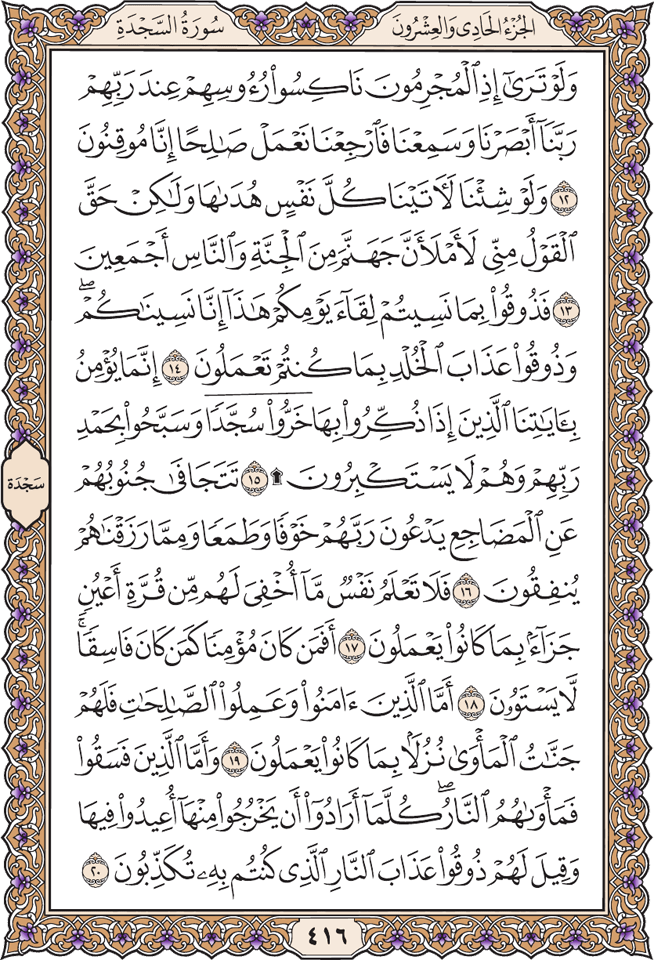 الجزء الحادي والعشرون
سورة السجدة
وَلَوْ تَرَىٰٓ إِذِ ٱلْمُجْرِمُونَ نَاكِسُوا۟ رُءُوسِهِمْ عِندَ رَبِّهِمْ
رَبَّنَآ أَبْصَرْنَا وَسَمِعْنَا فَٱرْجِعْنَا نَعْمَلْ صَـٰلِحًا إِنَّا مُوقِنُونَ
١٢ وَلَوْ شِئْنَا لَـَٔاتَيْنَا كُلَّ نَفْسٍ هُدَىٰهَا وَلَـٰكِنْ حَقَّ
ٱلْقَوْلُ مِنِّى لَأَمْلَأَنَّ جَهَنَّمَ مِنَ ٱلْجِنَّةِ وَٱلنَّاسِ أَجْمَعِينَ
١٣ فَذُوقُوا۟ بِمَا نَسِيتُمْ لِقَآءَ يَوْمِكُمْ هَـٰذَآ إِنَّا نَسِينَـٰكُمْ ۖ
وَذُوقُوا۟ عَذَابَ ٱلْخُلْدِ بِمَا كُنتُمْ تَعْمَلُونَ ١٤ إِنَّمَا يُؤْمِنُ
بِـَٔايَـٰتِنَا ٱلَّذِينَ إِذَا ذُكِّرُوا۟ بِهَا خَرُّوا۟ سُجَّدًا وَسَبَّحُوا۟ بِحَمْدِ
رَبِّهِمْ وَهُمْ لَا يَسْتَكْبِرُونَ ۩ ١٥ تَتَجَافَىٰ جُنُوبُهُمْ
سَجْدَة
عَنِ ٱلْمَضَاجِعِ يَدْعُونَ رَبَّهُمْ خَوْفًا وَطَمَعًا وَمِمَّا رَزَقْنَـٰهُمْ
يُنفِقُونَ ١٦ فَلَا تَعْلَمُ نَفْسٌ مَّآ أُخْفِىَ لَهُم مِّن قُرَّةِ أَعْيُنٍ
جَزَآءًۢ بِمَا كَانُوا۟ يَعْمَلُونَ ١٧ أَفَمَن كَانَ مُؤْمِنًا كَمَن كَانَ فَاسِقًا ۚ
لَّا يَسْتَوُۥنَ ١٨ أَمَّا ٱلَّذِينَ ءَامَنُوا۟ وَعَمِلُوا۟ ٱلصَّـٰلِحَـٰتِ فَلَهُمْ
جَنَّـٰتُ ٱلْمَأْوَىٰ نُزُلًۢا بِمَا كَانُوا۟ يَعْمَلُونَ ١٩ وَأَمَّا ٱلَّذِينَ فَسَقُوا۟
فَمَأْوَىٰهُمُ ٱلنَّارُ ۖ كُلَّمَآ أَرَادُوٓا۟ أَن يَخْرُجُوا۟ مِنْهَآ أُعِيدُوا۟ فِيهَا
وَقِيلَ لَهُمْ ذُوقُوا۟ عَذَابَ ٱلنَّارِ ٱلَّذِى كُنتُم بِهِۦ تُكَذِّبُونَ ٢٠
٤١٦